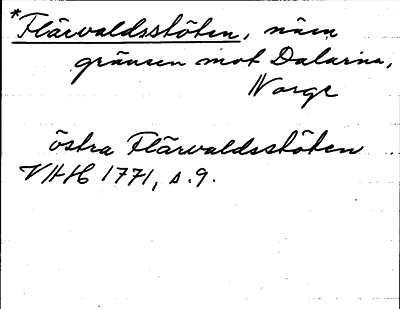 *Flärvaldsstöten, nära
gränsen mot Dalarna,
Norge
östra Flärvaldsstöten
VHH 1771, s. 9.